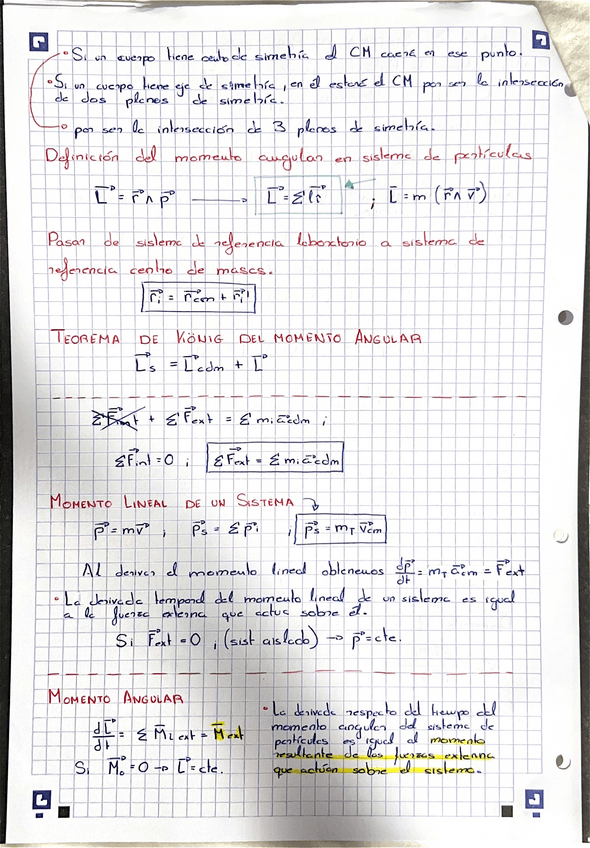 • Si un cuerpo tiene centro de simetría el CM caerá en ese punto.
• Si un cuerpo tiene eje de simetría, en él estará el CM por ser la intersección
de dos planos de simetría.
→ por ser la intersección de 3 planos de simetría.
Definición del momento angular en sistema de partículas
L⃗ = r⃗ ∧ p⃗ → L⃗ = Σ l⃗i ; L̄ = m (r⃗ ∧ v⃗)
Pasar de sistema de referencia laboratorio a sistema de
referencia centro de masas.
r⃗i = r⃗cm + r⃗i'
TEOREMA DE KÖNIG DEL MOMENTO ANGULAR
L⃗s = L⃗cdm + L⃗'
ΣF⃗int + ΣF⃗ext = Σ mi a⃗cdm ;
ΣF⃗int = 0 ; ΣF⃗ext = Σ mi a⃗cdm
MOMENTO LINEAL DE UN SISTEMA
p⃗ = mv⃗ ; p⃗s = Σ p⃗i ; p⃗s = mT v⃗cm
Al derivar el momento lineal obtenemos dp⃗/dt = mT a⃗cm = F⃗ext
• La derivada temporal del momento lineal de un sistema es igual
a la fuerza externa que actua sobre él.
Si F⃗ext = 0 , (sist aislado) → p⃗ = cte.
MOMENTO ANGULAR
dL⃗/dt = Σ M̄i ext = M̄ext
Si M̄o = 0 → L⃗ = cte.
• La derivada respecto del tiempo del
momento angular del sistema de
partículas es igual al momento
resultante de las fuerzas externa
que actúan sobre el sistema.